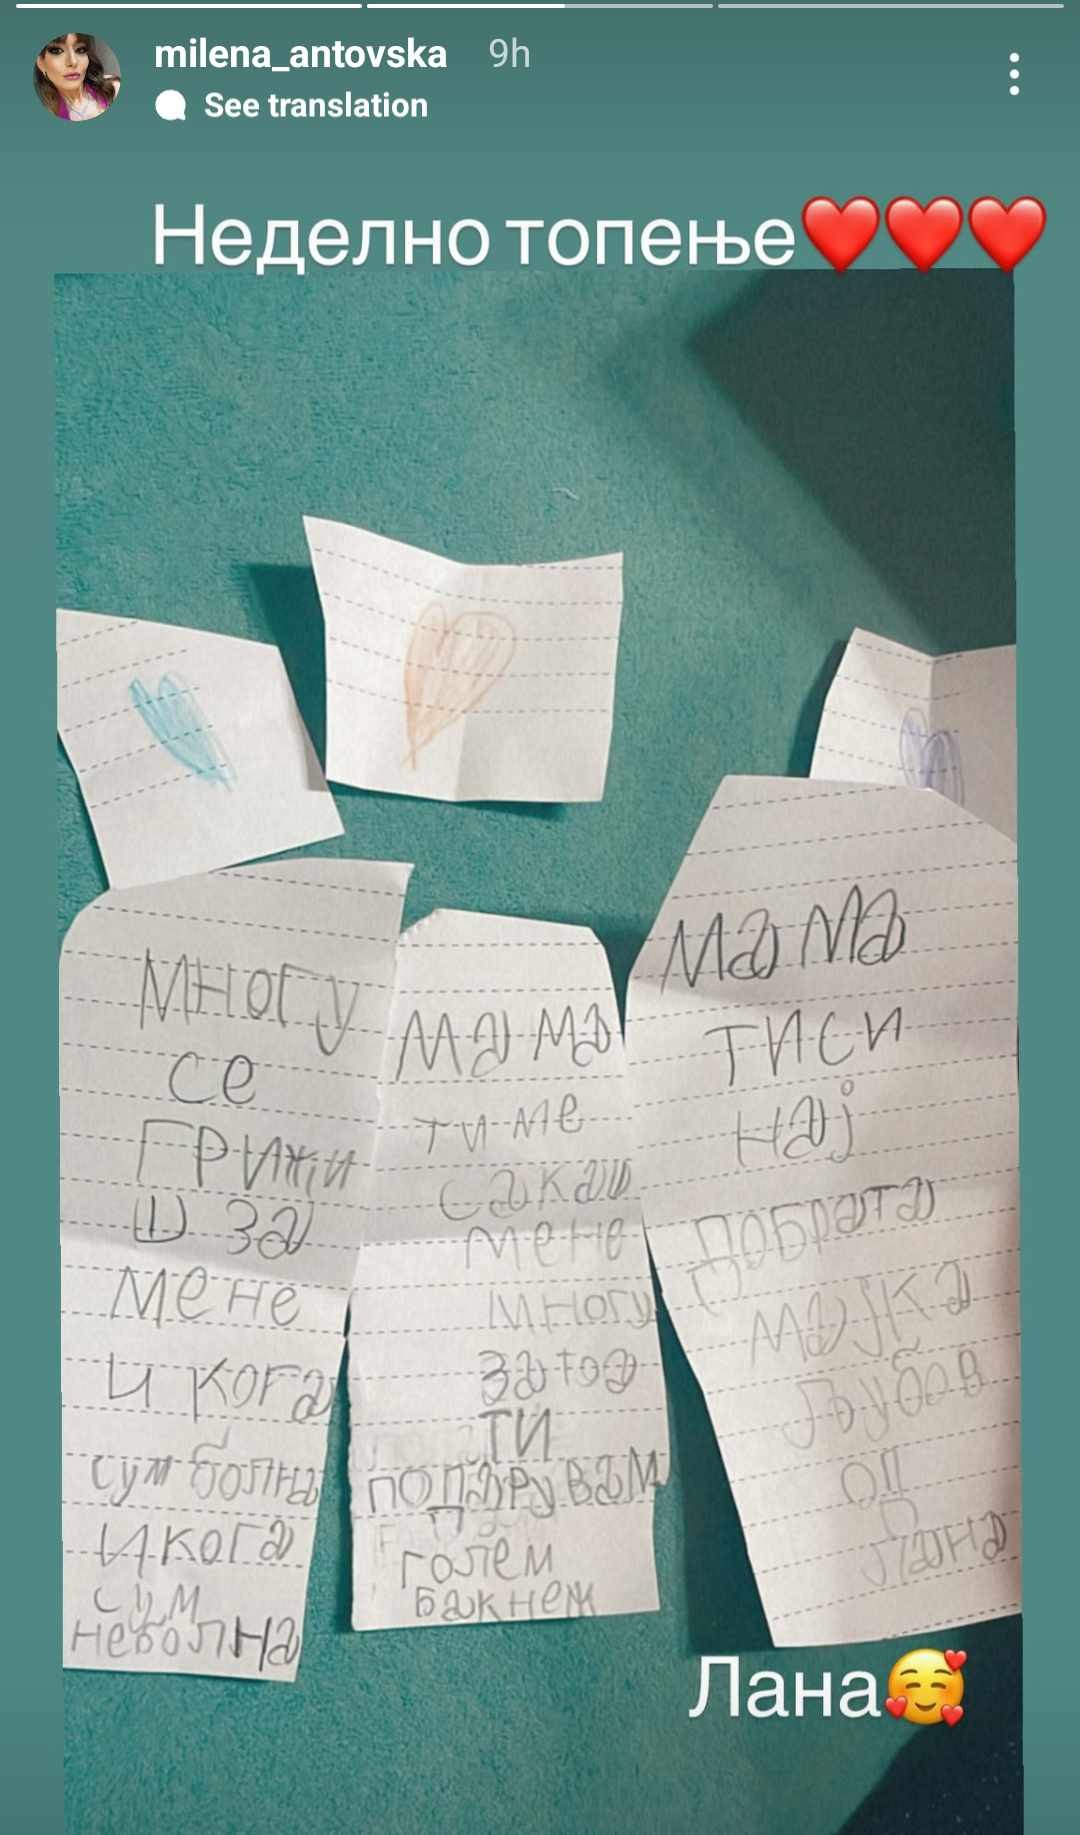 milena_antovska 9h
See translation
Неделно топење❤️❤️❤️
многу
се
грижи
ш за
мене
и кога
сум болна
и кога
сум
неболна
мама
ти ме
сакаш
мене
многу
затоа
ти
подарувам
голем
бакнеж
мама
тиси
нај
добрата
мајка
љубов
од
лана
Лана🥰